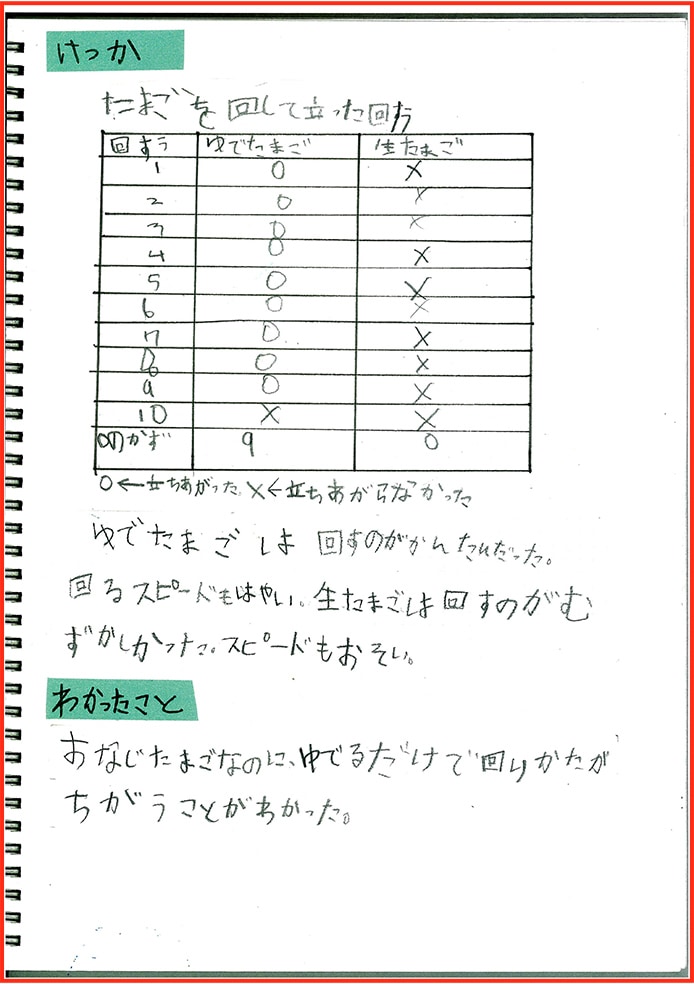 けっか
たまごを回して立った回すう
回すう ゆでたまご 生たまご
1 ○ ×
2 ○ ×
3 ○ ×
4 ○ ×
5 ○ ×
6 ○ ×
7 ○ ×
8 ○ ×
9 ○ ×
10 × ×
○のかず 9 0
○←立ちあがった ×←立ちあがらなかった
ゆでたまごは 回すのがかんたんだった。
回るスピードもはやい。生たまごは回すのがむ
ずかしかった。スピードもおそい。
わかったこと
おなじたまごなのに、ゆでるだけで回りかたが
ちがうことがわかった。